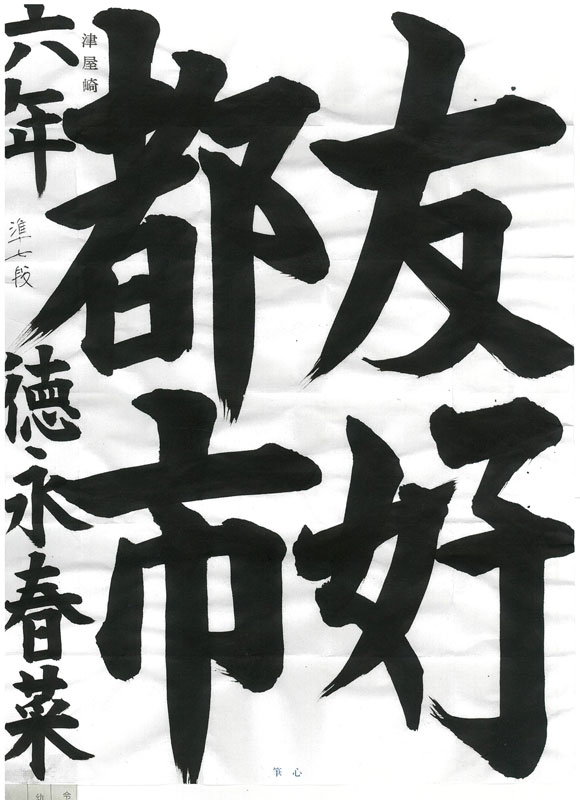 友好
都市
津屋崎
六年 準七段 徳永春菜
心筆